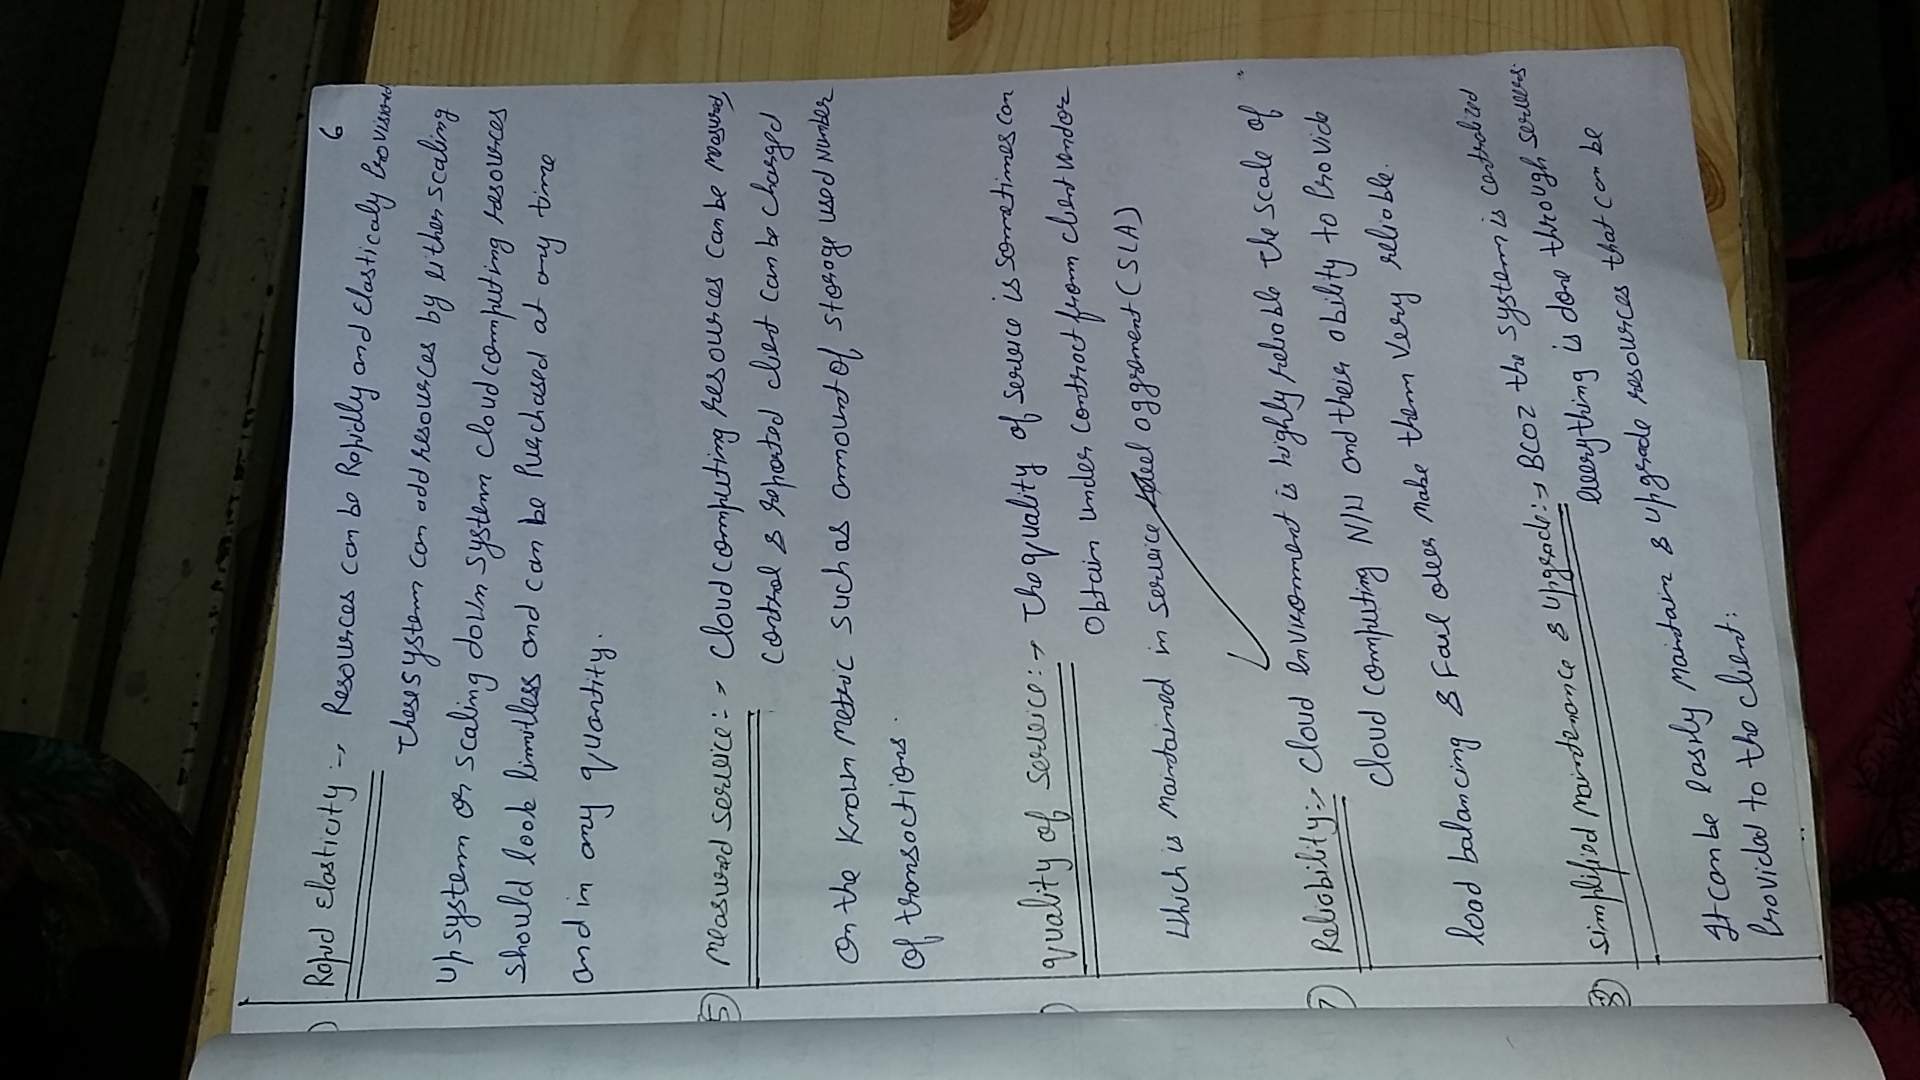 6
) Rapid Elasticity :→ Resources can be Rapidly and Elasticaly Provisioned
These system can add resources by either scaling
up system or scaling down system cloud computing resources
should look limitless and can be Purchased at any time
and in any quantity.
5) Measured service :→ Cloud computing resources can be measured,
control & reported client can be charged
On the known metric such as amount of storage used Number
of transactions.
) quality of service :→ The quality of service is sometimes can
Obtain under contract from client vendor
Which is maintained in service level aggrement (SLA)
7) Reliability :→ Cloud environment is highly reliable the scale of
cloud computing N/W and their ability to Provide
load balancing & Fail over make them very reliable.
8) Simplified Maintenance & Upgrade :→ BCOZ the system is centralized
everything is done through servers.
It can be easily maintain & upgrade resources that can be
Provided to the client.